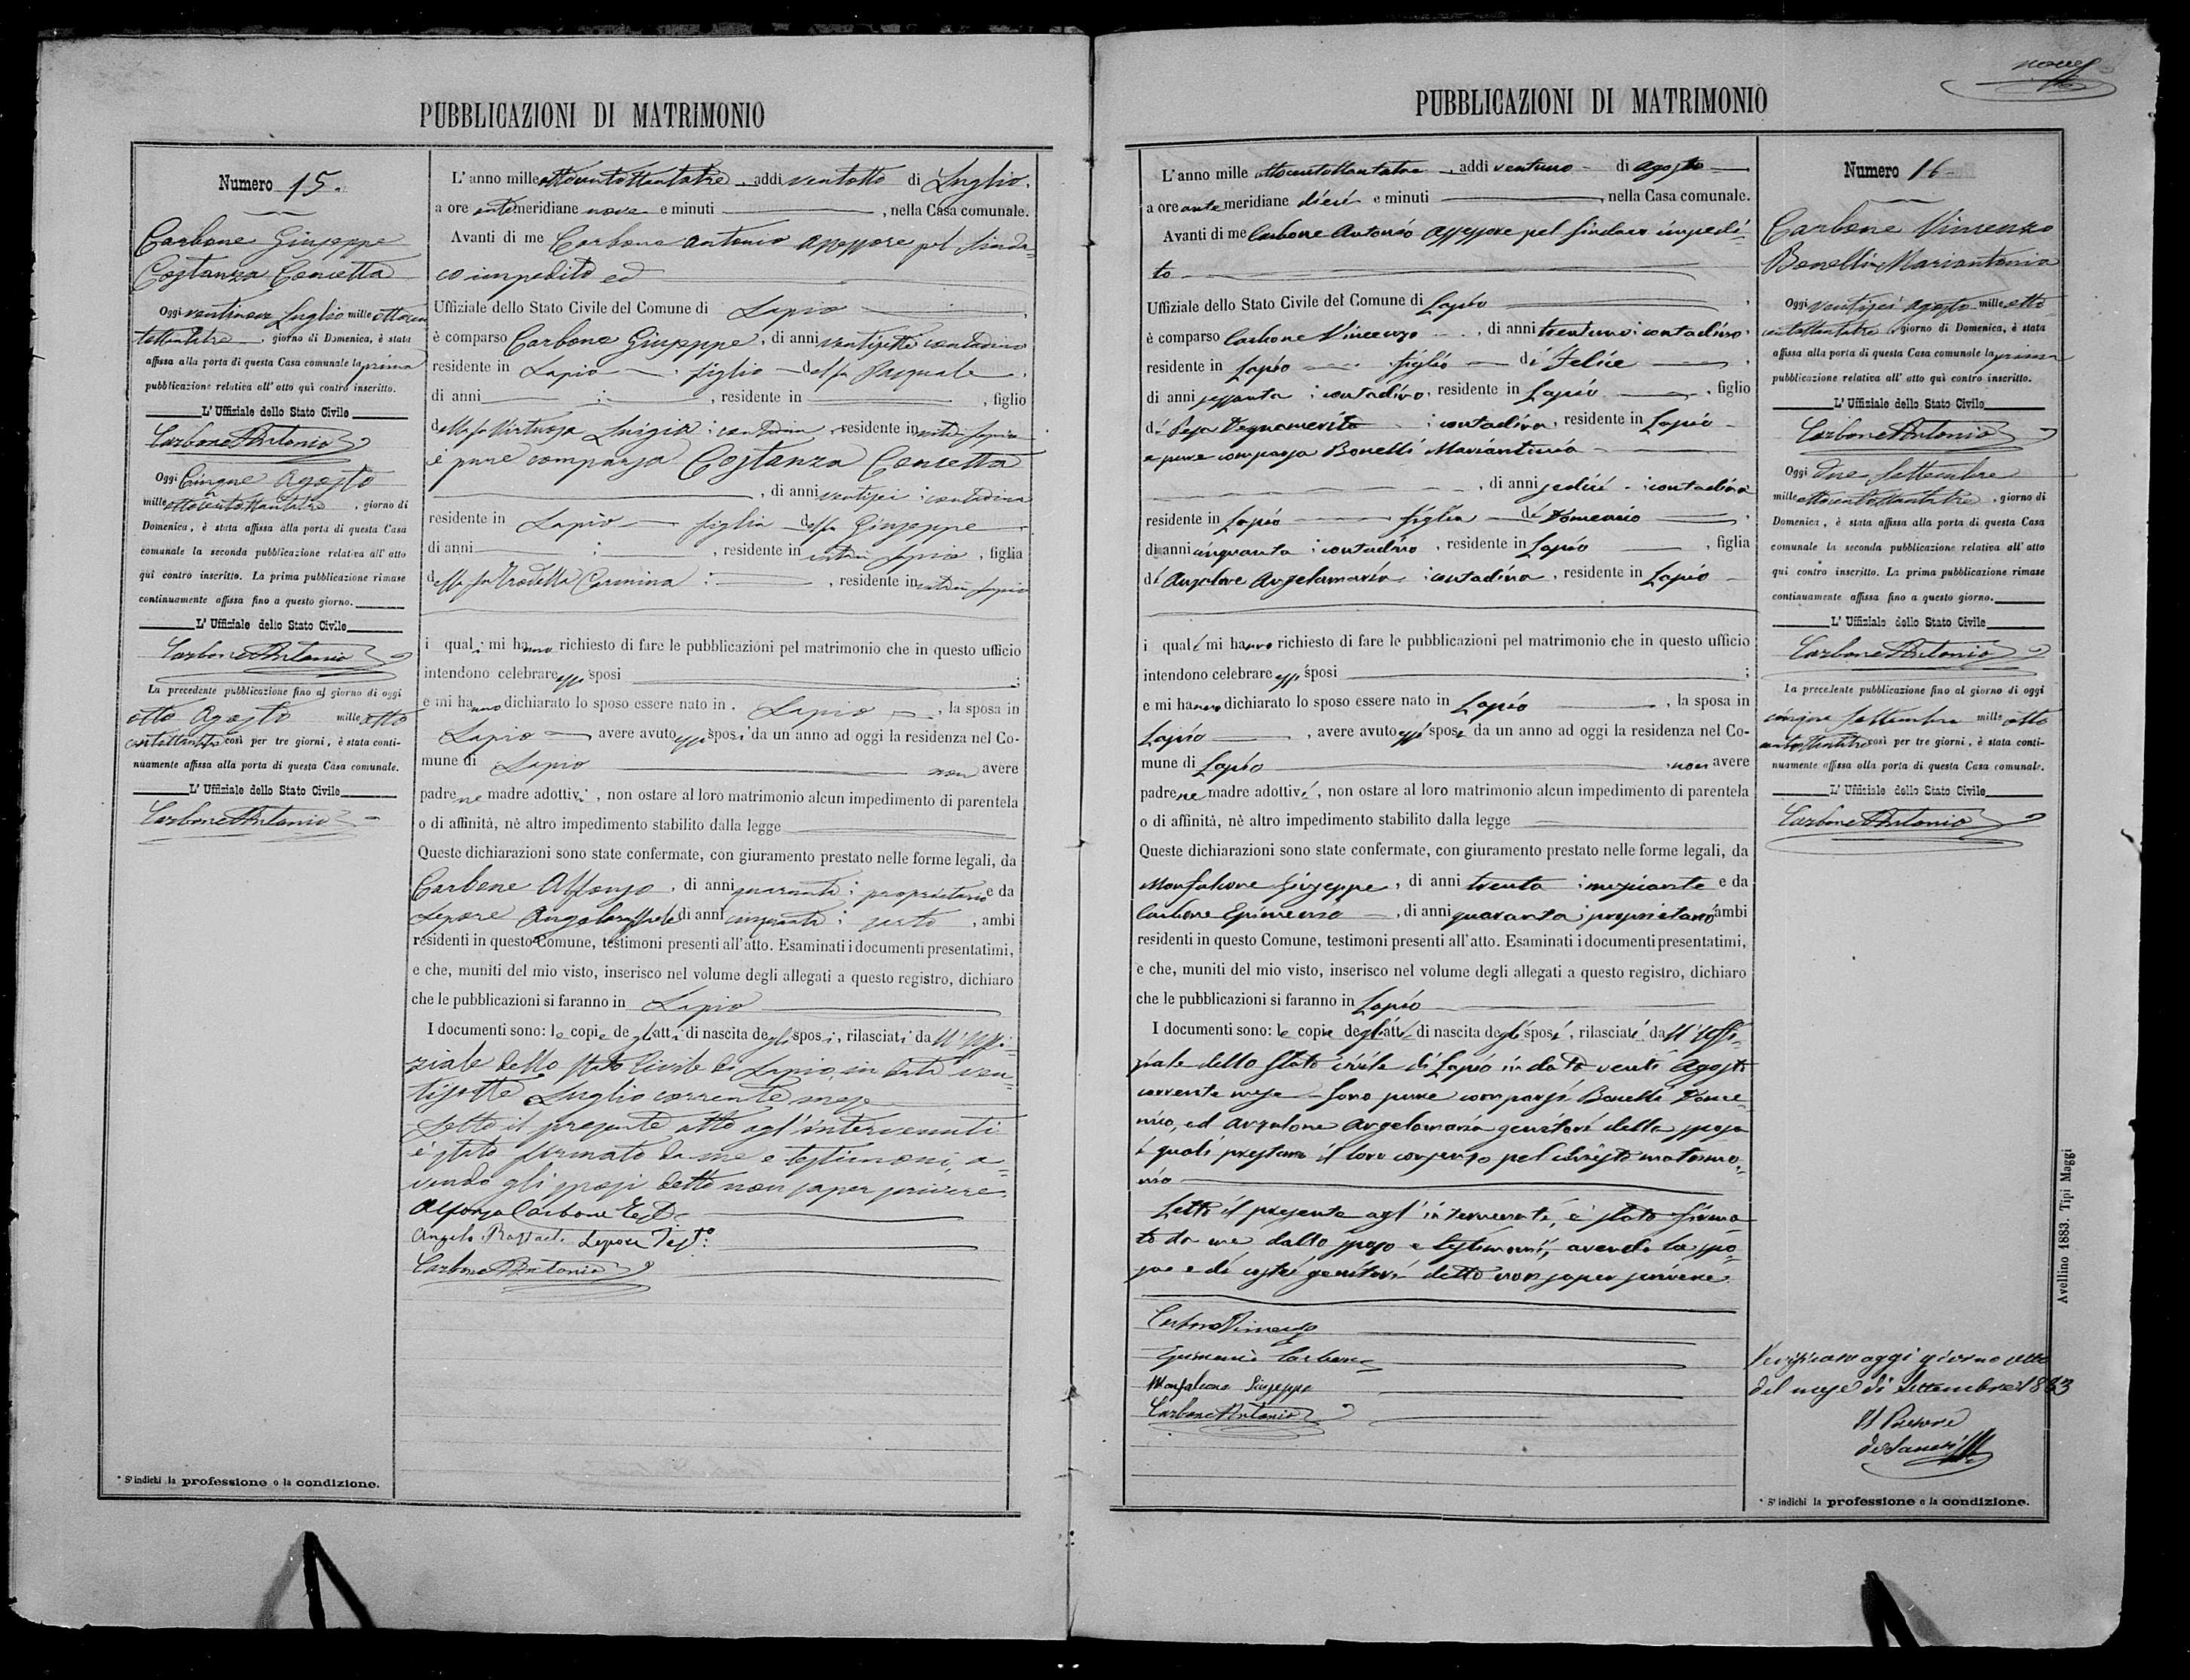 PUBBLICAZIONI DI MATRIMONIO
Numero 15.
Carbone Giuseppe
Costanza Concetta
Oggi ventinove Luglio mille ottocen
tottantatre, giorno di Domenica, è stata
affissa alla porta di questa Casa comunale la prima
pubblicazione relativa all' atto quì contro inscritto.
L' Uffiziale dello Stato Civile
Carbone Antonio
Oggi Cinque Agosto
mille ottocentottantatre, giorno di
Domenica, è stata affissa alla porta di questa Casa
comunale la seconda pubblicazione relativa all' atto
qui contro inscritto. La prima pubblicazione rimase
continuamente affissa fino a questo giorno.
L' Uffiziale dello Stato Civile
Carbone Antonio
La precedente pubblicazione fino al giorno di oggi
otto Agosto mille otto
centottantatre così per tre giorni, è stata conti-
nuamente affissa alla porta di questa Casa comunale.
L' Uffiziale dello Stato Civile
Carbone Antonio
* S' indichi la professione o la condizione.
L' anno mille ottocentottantatre, addì ventotto di Luglio,
a ore antimeridiane nove e minuti , nella Casa comunale.
Avanti di me Carbone Antonio Assessore pel Sinda-
co impedito ed
Uffiziale dello Stato Civile del Comune di Lapio,
è comparso Carbone Giuseppe, di anni ventisette contadino
residente in Lapio figlio del fu Pasquale,
di anni ; , residente in , figlio
della fu Virtuosa Luigia : contadina, residente in vita Lapio
è pure comparsa Costanza Concetta
, di anni ventisei : contadina
residente in Lapio figlia del fu Giuseppe
di anni ; , residente in vita in Lapio, figlia
della fu Trodella Carmina : , residente in vita in Lapio
i quali mi hanno richiesto di fare le pubblicazioni pel matrimonio che in questo ufficio
intendono celebrare essi sposi ;
e mi hanno dichiarato lo sposo essere nato in Lapio, la sposa in
Lapio avere avuto essi sposi da un anno ad oggi la residenza nel Co-
mune di Lapio non avere
padre ne madre adottivi, non ostare al loro matrimonio alcun impedimento di parentela
o di affinità, nè altro impedimento stabilito dalla legge
Queste dichiarazioni sono state confermate, con giuramento prestato nelle forme legali, da
Carbone Alfonso, di anni quaranta : proprietario e da
Lepore Angeloraffaele di anni cinquanta : sarto, ambi
residenti in questo Comune, testimoni presenti all'atto. Esaminati i documenti presentatimi,
e che, muniti del mio visto, inserisco nel volume degli allegati a questo registro, dichiaro
che le pubblicazioni si faranno in Lapio
I documenti sono: le copie degli atti di nascita degli sposi, rilasciati dall' Uffi-
ziale dello Stato Civile di Lapio, in data ven-
tisette Luglio corrente mese
Letto il presente atto agl' intervenuti
è stato firmato da me e testimoni, a-
vendo gli sposi detto non saper scrivere
Alfonso Carbone Testo
Angelo Raffaele Lepore Testo:
Carbone Antonio
PUBBLICAZIONI DI MATRIMONIO
nove
L' anno mille ottocentottantatre, addì ventuno di Agosto
a ore antemeridiane dieci e minuti , nella Casa comunale.
Avanti di me Carbone Antonio Assessore pel Sindaco impedi-
to
Uffiziale dello Stato Civile del Comune di Lapio,
è comparso Carbone Vincenzo, di anni trentuno : contadino,
residente in Lapio figlio di Felice,
di anni sessanta : contadino, residente in Lapio, figlio
di Pepa Degnamerita : contadina, residente in Lapio
e pure comparsa Bonelli Mariantonia
, di anni sedici : contadina
residente in Lapio figlia di Domenico,
di anni cinquanta : contadino, residente in Lapio, figlia
di Anzalone Angelamaria : contadina, residente in Lapio
i quali mi hanno richiesto di fare le pubblicazioni pel matrimonio che in questo ufficio
intendono celebrare essi sposi ;
e mi hanno dichiarato lo sposo essere nato in Lapio, la sposa in
Lapio, avere avuto essi sposi da un anno ad oggi la residenza nel Co-
mune di Lapio, non avere
padre ne madre adottivi, non ostare al loro matrimonio alcun impedimento di parentela
o di affinità, nè altro impedimento stabilito dalla legge
Queste dichiarazioni sono state confermate, con giuramento prestato nelle forme legali, da
Monfalcone Giuseppe, di anni trenta : negoziante e da
Carbone Epimenio, di anni quaranta : proprietario, ambi
residenti in questo Comune, testimoni presenti all'atto. Esaminati i documenti presentatimi,
e che, muniti del mio visto, inserisco nel volume degli allegati a questo registro, dichiaro
che le pubblicazioni si faranno in Lapio
I documenti sono: le copie degli atti di nascita degli sposi, rilasciati dall' Uffi-
ziale dello Stato civile di Lapio in data venti Agosto
corrente mese Sono pure comparsi Bonelli Dome-
nico, ed Anzalone Angelamaria genitori della sposa
i quali prestano il loro consenso pel chiesto matrimo-
nio
Letto il presente agl' intervenuti, è stato firma-
to da me dallo sposo e testimoni, avendo la spo-
sa e di costei genitori detto non saper scrivere
Carbone Vincenzo
Epimenio Carbone
Monfalcone Giuseppe
Carbone Antonio
Numero 16
Carbone Vincenzo
Bonelli Mariantonia
Oggi ventisei Agosto mille otto
centottantatre, giorno di Domenica, è stata
affissa alla porta di questa Casa comunale la prima
pubblicazione relativa all' atto quì contro inscritto.
L' Uffiziale dello Stato Civile
Carbone Antonio
Oggi Due Settembre
mille ottocentottantatre, giorno di
Domenica, è stata affissa alla porta di questa Casa
comunale la seconda pubblicazione relativa all' atto
qui contro inscritto. La prima pubblicazione rimase
continuamente affissa fino a questo giorno.
L' Uffiziale dello Stato Civile
Carbone Antonio
La precedente pubblicazione fino al giorno di oggi
cinque Settembre mille otto
centottantatre così per tre giorni, è stata conti-
nuamente affissa alla porta di questa Casa comunale.
L' Uffiziale dello Stato Civile
Carbone Antonio
oggi giorno otto
del mese di Settembre 1883
Il Pretore
* S' indichi la professione o la condizione.
Avellino 1883. Tipi Maggi